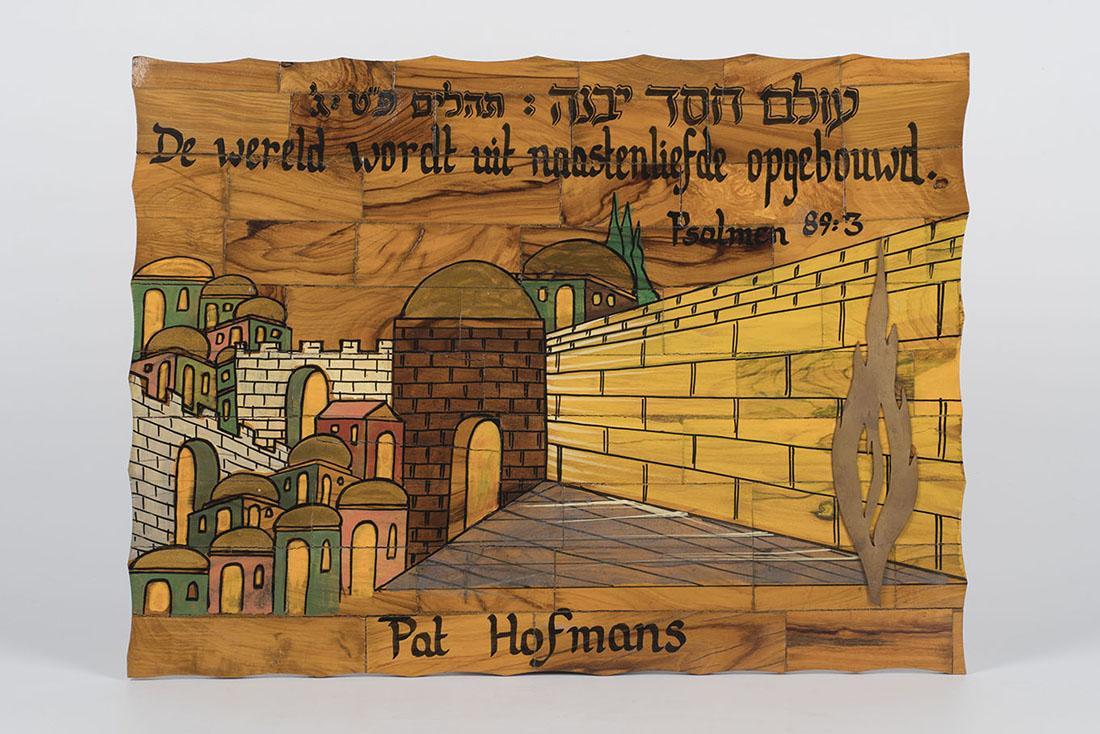 עולם חסד יבנה : תהלים פ"ט ג'
De wereld wordt uit naastenliefde opgebouwd.
Psalmen 89:3
Pat Hofmans